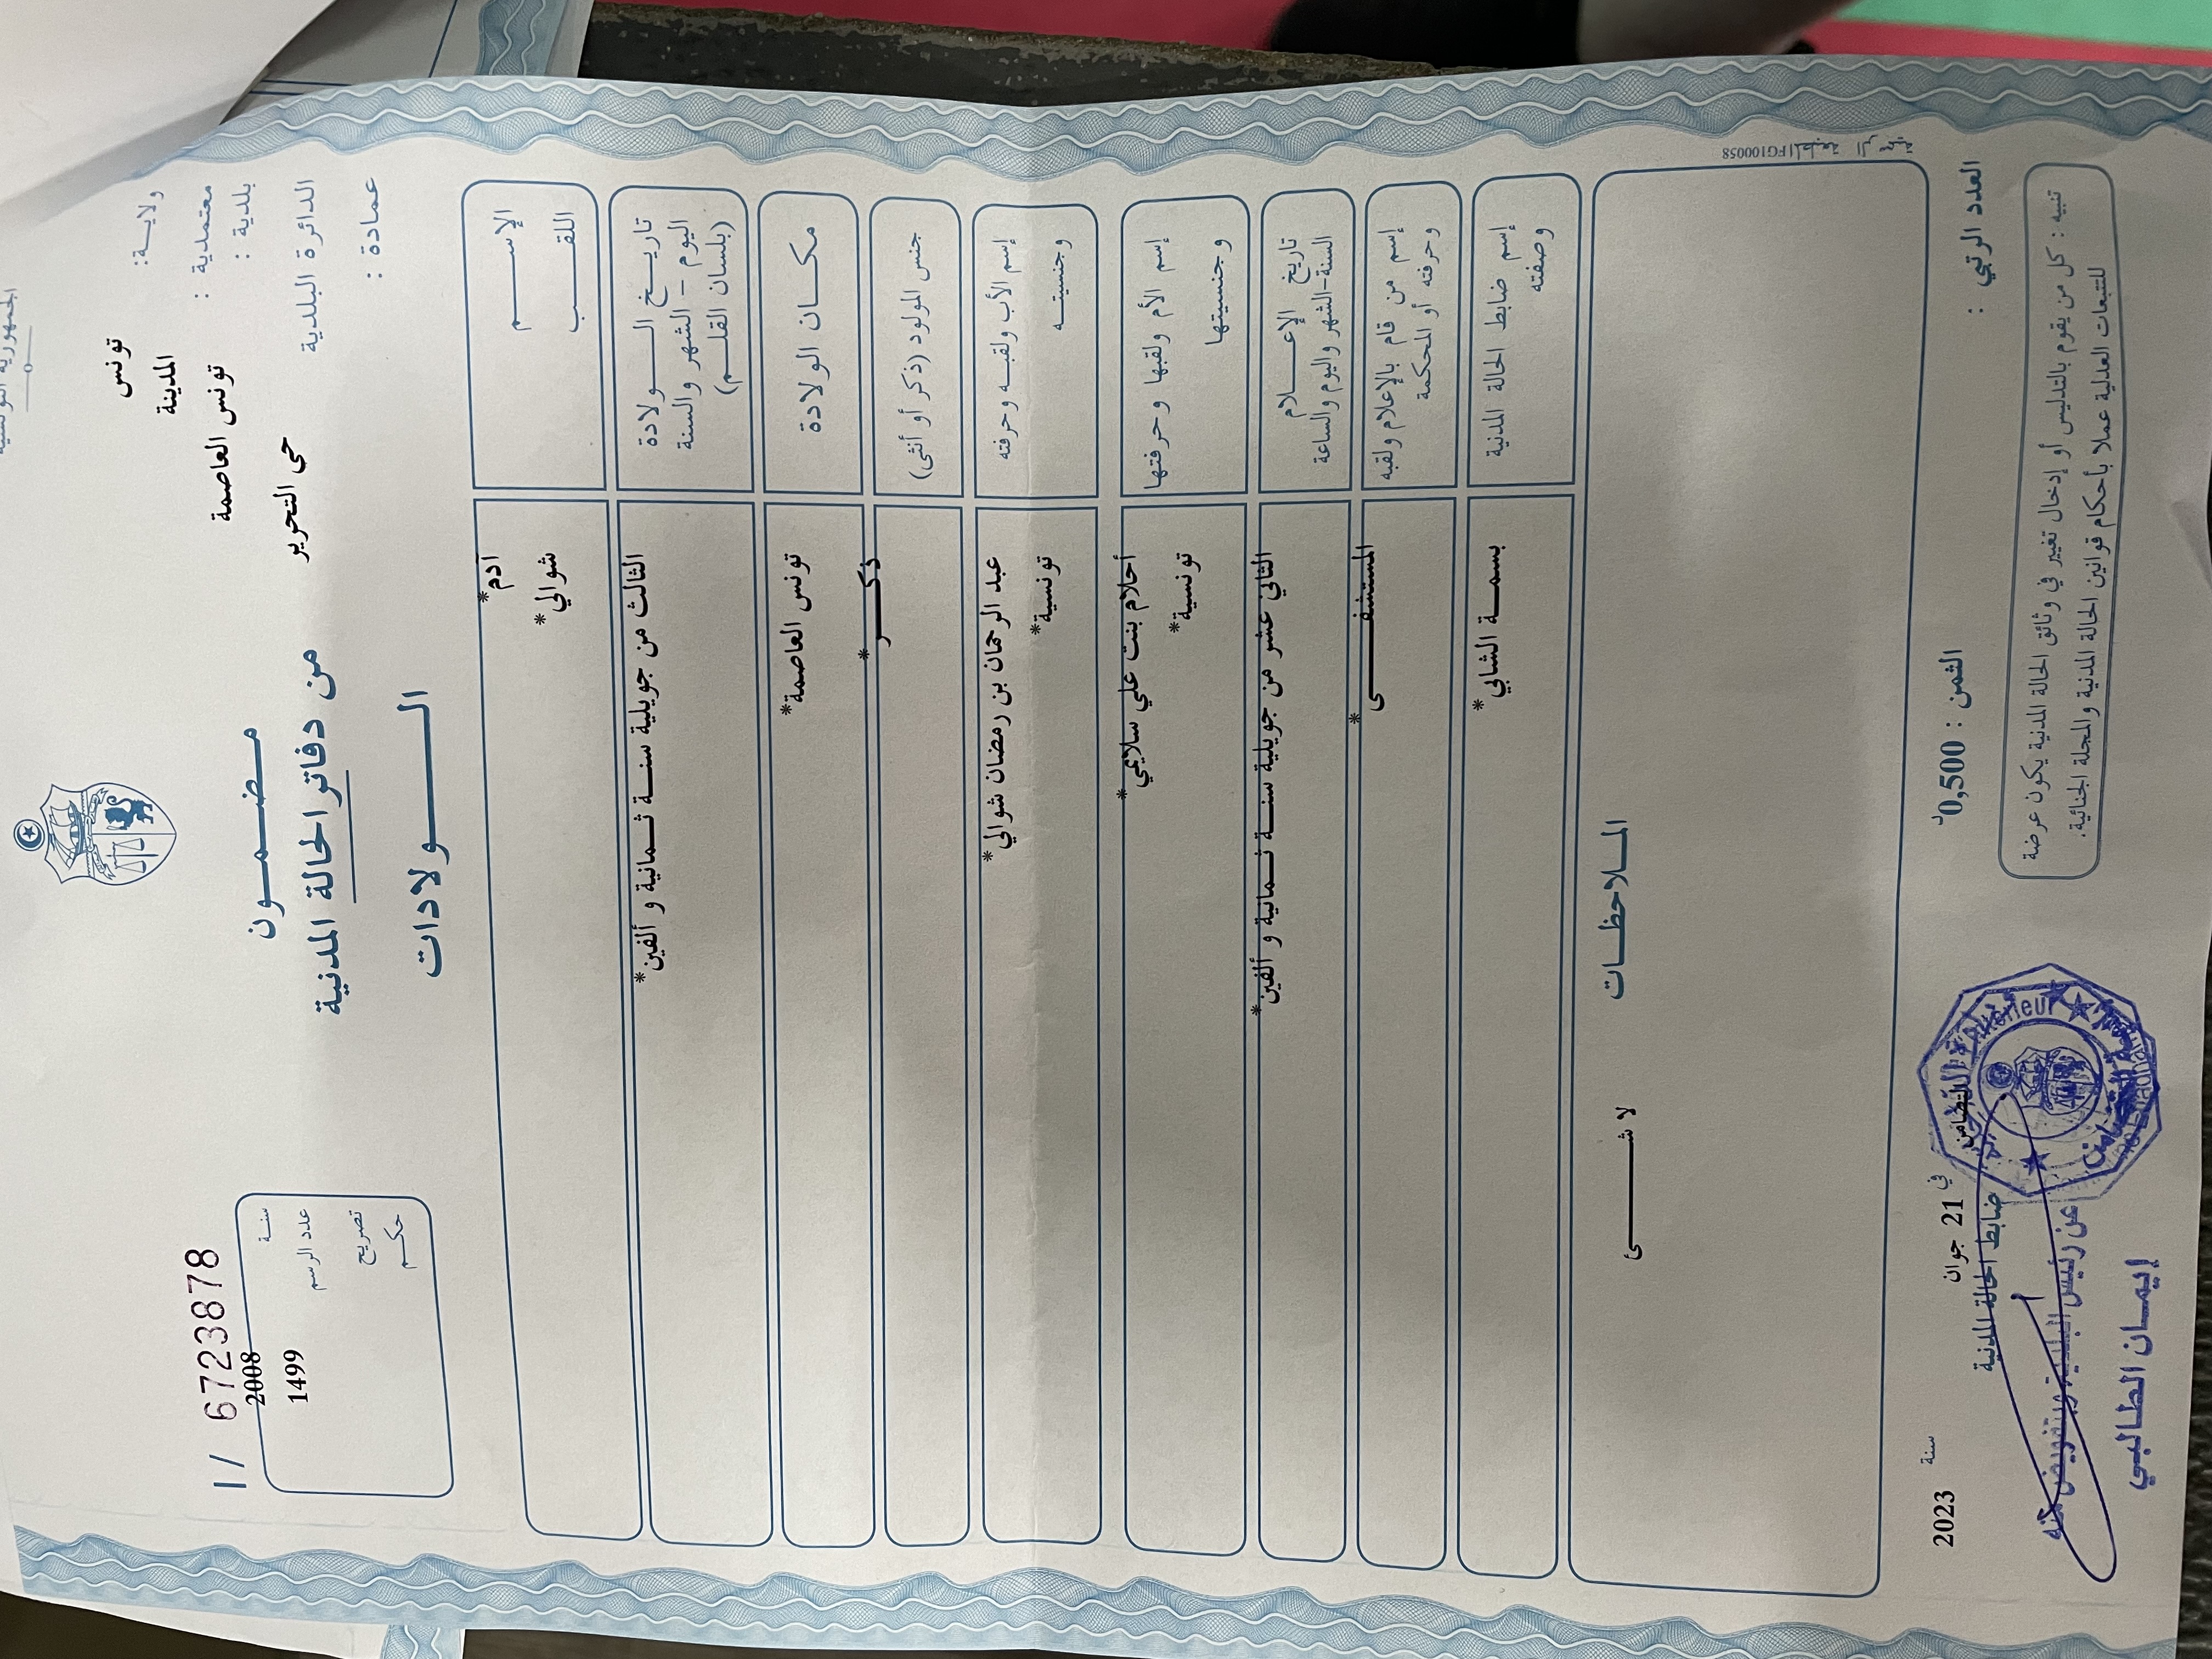 الجمهورية التونسية
ولايــة: تونس
معتمدية : المدينة
بلدية : تونس العاصمة
الدائرة البلدية حي التحرير
عمادة :
مـضـمـون
من دفاتر الحالة المدنية
الـــولادات
1/ 6723878
سنـة 2008
عدد الرسم 1499
تصريح
حكـم
الإســـم *آدم
اللقـــب *شوالي
تاريـــخ الـــولادة
اليوم - الشهر والسنة
(بلسان القلـم)
*الثالث من جويلية سنـة ثـمانية و ألفين
مكـــان الولادة *تونس العاصمة
جنس المولود (ذكر أو أنثى) *ذكـــر
إسم الأب ولقبـه وحرفته *عبد الرحمان بن رمضان شوالي
وجنسيتــه *تونسية
إسم الأم ولقبها وحرفتها *أحلام بنت علي سلايمي
وجنسيتها *تونسية
تاريخ الإعـــلام
السنة-الشهر واليوم والساعة
*الثاني عشر من جويلية سنـة ثـمانية و ألفين
إسم من قام بالإعلام ولقبه
وحرفته أو المحكمة
*المستشفـــى
إسم ضابط الحالة المدنية
وصفته
*بسمـة الشابي
المـلاحظـات
لا شـــئ
المطبعة الرسمية FG100058
العدد الرتبي :
الثمن : 0,500د
في 21 جوان سنة 2023
ضابط الحالة المدنية
عن رئيس البلدية وبتفويض منه
إيمـان الطـالبـي
تنبيه : كل من يقوم بالتدليس أو إدخال تغيير في وثائق الحالة المدنية يكون عرضة
للتتبعات العدلية عملا بأحكام قوانين الحالة المدنية والمجلة الجنائية.